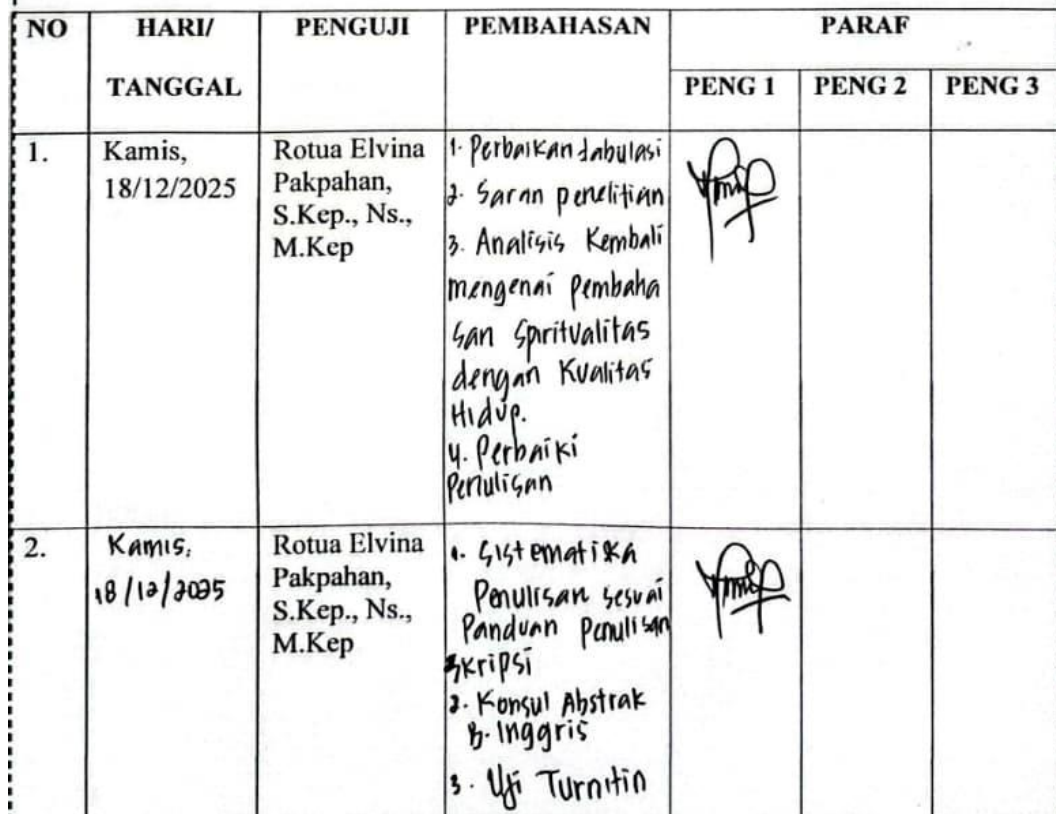 NO HARI/ PENGUJI PEMBAHASAN PARAF
TANGGAL PENG 1 PENG 2 PENG 3
1.
Kamis,
18/12/2025
Rotua Elvina
Pakpahan,
S.Kep., Ns.,
M.Kep
1. Perbaikan tabulasi
2. Saran penelitian
3. Analisis Kembali
mengenai Pembaha
san Spiritualitas
dengan Kualitas
Hidup.
4. Perbaiki
Penulisan
2.
Kamis,
18/12/2025
Rotua Elvina
Pakpahan,
S.Kep., Ns.,
M.Kep
1. Sistematika
Penulisan sesuai
Panduan Penulisan
Skripsi
2. Konsul Abstrak
B. Inggris
3. Uji Turnitin